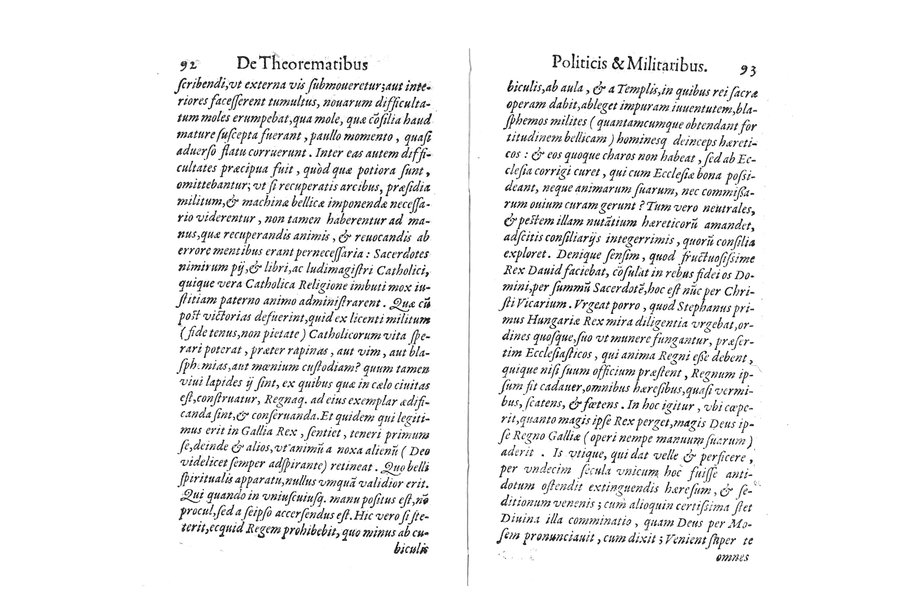 92 De Theorematibus
ſcribendi,vt externa vis ſubmoueretur;aut inte-
riores faceſſerent tumultus, nouarum difficulta-
tum moles erumpebat,qua mole, quæ cōſilia haud
mature ſuſcepta fuerant, paullo momento, quaſi
aduerſo flatu corruerunt. Inter eas autem diffi-
cultates præcipua fuit, quòd quæ potiora ſunt,
omittebantur; vt ſi recuperatis arcibus, præſidia
militum,& machinæ bellicæ imponendæ neceſſa-
rio viderentur, non tamen haberentur ad ma-
nus,quæ recuperandis animis, & reuocandis ab
errore mentibus erant perneceſſaria: Sacerdotes
nimirum pij,& libri,ac ludimagiſtri Catholici,
quique vera Catholica Religione imbuti mox iu-
ſtitiam paterno animo adminiſtrarent. Quæ cū
poſt victorias defuerint,quid ex licenti militum
(fide tenus,non pietate) Catholicorum vita ſpe-
rari poterat, præter rapinas, aut vim, aut bla-
ſphemias,aut mœnium cuſtodiam? quum tamen
viui lapides ij ſint, ex quibus quæ in cælo ciuitas
eſt,conſtruatur, Regnaq. ad eius exemplar ædifi-
canda ſint,& conſeruanda.Et quidem qui legiti-
mus erit in Gallia Rex, ſentiet, teneri primum
ſe,deinde & alios,vt animū a noxa alienū (Deo
videlicet ſemper adſpirante) retineat. Quo belli
ſpiritualis apparatu,nullus vmquā validior erit.
Qui quando in vniuſcuiuſq. manu poſitus eſt,nō
procul,ſed a ſeipſo accerſendus eſt.Hic vero ſi ſte-
terit,ecquid Regem prohibebit, quo minus ab cu-
biculis
Politicis & Militaribus. 93
biculis,ab aula, & a Templis,in quibus rei ſacræ
operam dabit,ableget impuram iuuentutem,bla-
ſphemos milites (quantamcumque obtendant for
titudinem bellicam) hominesq deinceps hæreti-
cos: & eos quoque charos non habeat, ſed ab Ec-
cleſia corrigi curet, qui cum Eccleſiæ bona poſſi-
deant, neque animarum ſuarum, nec commiſſa-
rum ouium curam gerunt? Tum vero neutrales,
& peſtem illam nutātium hæreticorū amandet,
adſcitis conſiliarijs integerrimis, quorū conſilia
exploret. Denique ſenſim, quod fructuoſiſſime
Rex Dauid faciebat, cōſulat in rebus fidei os Do-
mini,per ſummū Sacerdotē,hoc eſt nūc per Chri-
ſti Vicarium. Vrgeat porro, quod Stephanus pri-
mus Hungariæ Rex mira diligentia vrgebat,or-
dines quoſque,ſuo vt munere fungantur, præſer-
tim Eccleſiaſticos, qui anima Regni eſſe debent,
quique niſi ſuum officium præſtent, Regnum ip-
ſum fit cadauer,omnibus hæreſibus,quaſi vermi-
bus, ſcatens, & fœtens. In hoc igitur, vbi cœpe-
rit,quanto magis ipſe Rex perget,magis Deus ip-
ſe Regno Galliæ (operi nempe manuum ſuarum)
aderit. Is vtique, qui dat velle & perficere,
per vndecim ſecula vnicum hoc fuiſſe anti-
dotum oſtendit extinguendis hæreſum, & ſe-
ditionum venenis; cum alioquin certiſſima ſtet
Diuina illa comminatio, quam Deus per Mo-
ſem pronunciauit, cum dixit; Venient ſuper te
omnes